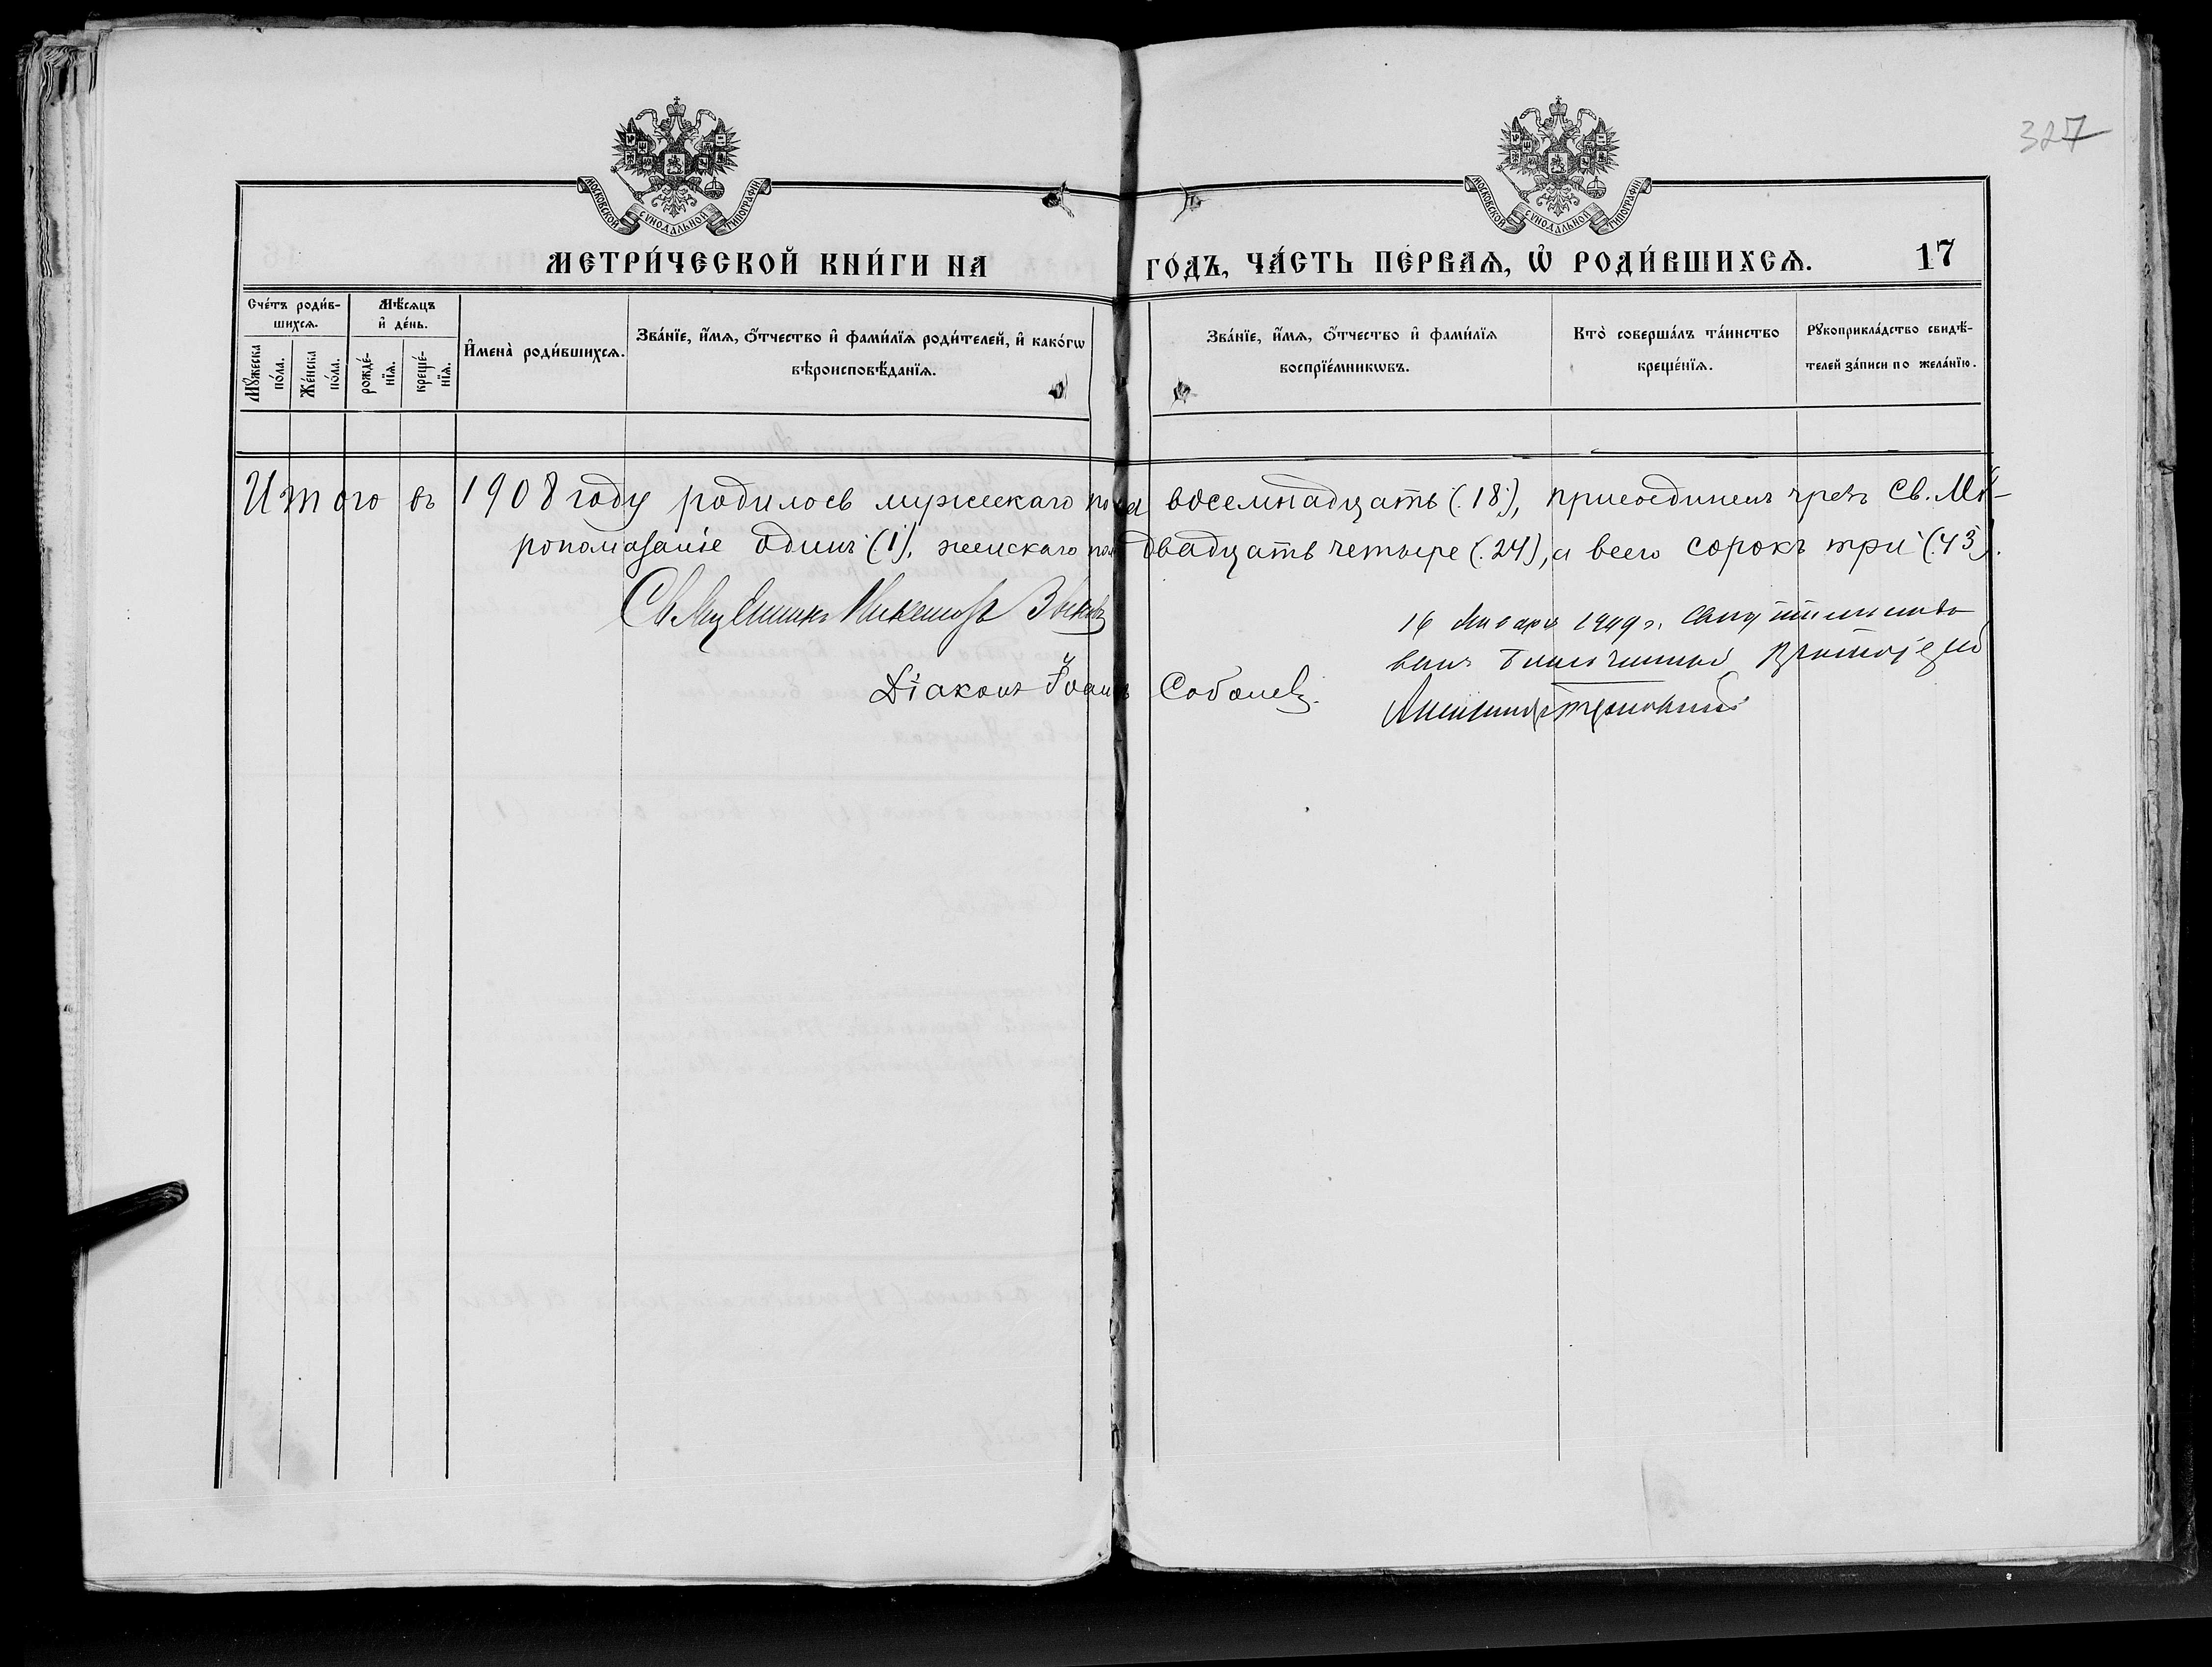 327
МОСКОВСКОЙ СѴНОДАЛЬНОЙ ТИПОГРАФІИ
МОСКОВСКОЙ СѴНОДАЛЬНОЙ ТИПОГРАФІИ
МЕТРИ́ЧЕСКОЙ КНИ́ГИ НА ГО́ДЪ, ЧА́СТЬ ПЕ́РВАѦ, Ѡ҆ РОДИ́ВШИХСѦ. 17
Сче́тъ роди́в-
шихсѧ.
Мꙋ́жеска
по́ла.
Же́нска
по́ла.
Мѣ́сѧцъ
и҆ де́нь.
рожде́-
нїѧ.
креще́-
нїѧ.
И҆мена̀ роди́вшихсѧ.
Зва́нїе, и҆́мѧ, ѻ҆́тчество и҆ фами́лїѧ роди́телей, и҆ како́гѡ
вѣроисповѣ́данїѧ.
Зва́нїе, и҆́мѧ, ѻ҆́тчество и҆ фами́лїѧ
воспрїе́мникѡвъ.
Кто̀ соверша́лъ та́инство
креще́нїѧ.
Рꙋкоприкла́дство свидѣ́-
телей за́писи по жела́нїю.
Итого въ 1908 году родилось мужескаго пола восемнадцать (18), присоединенъ чрезъ Св. Мѵ-
ропомазаніе одинъ (1), женскаго пола двадцать четыре (24), а всего сорокъ три (43).
Діаконъ Іоаннъ Соболев
16 Января 1909 г.
Благочинный Протоіерей